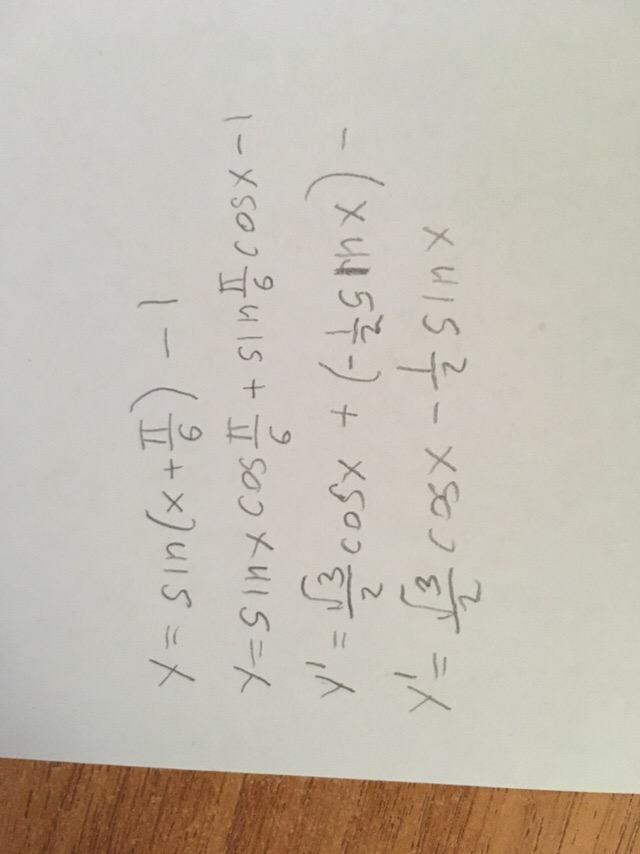 y = sin(x + π/6) - 1
y = sinx cos π/6 + sin π/6 cosx - 1
y' = √3/2 cosx + (-1/2 sinx) -
y' = √3/2 cosx - 1/2 sinx